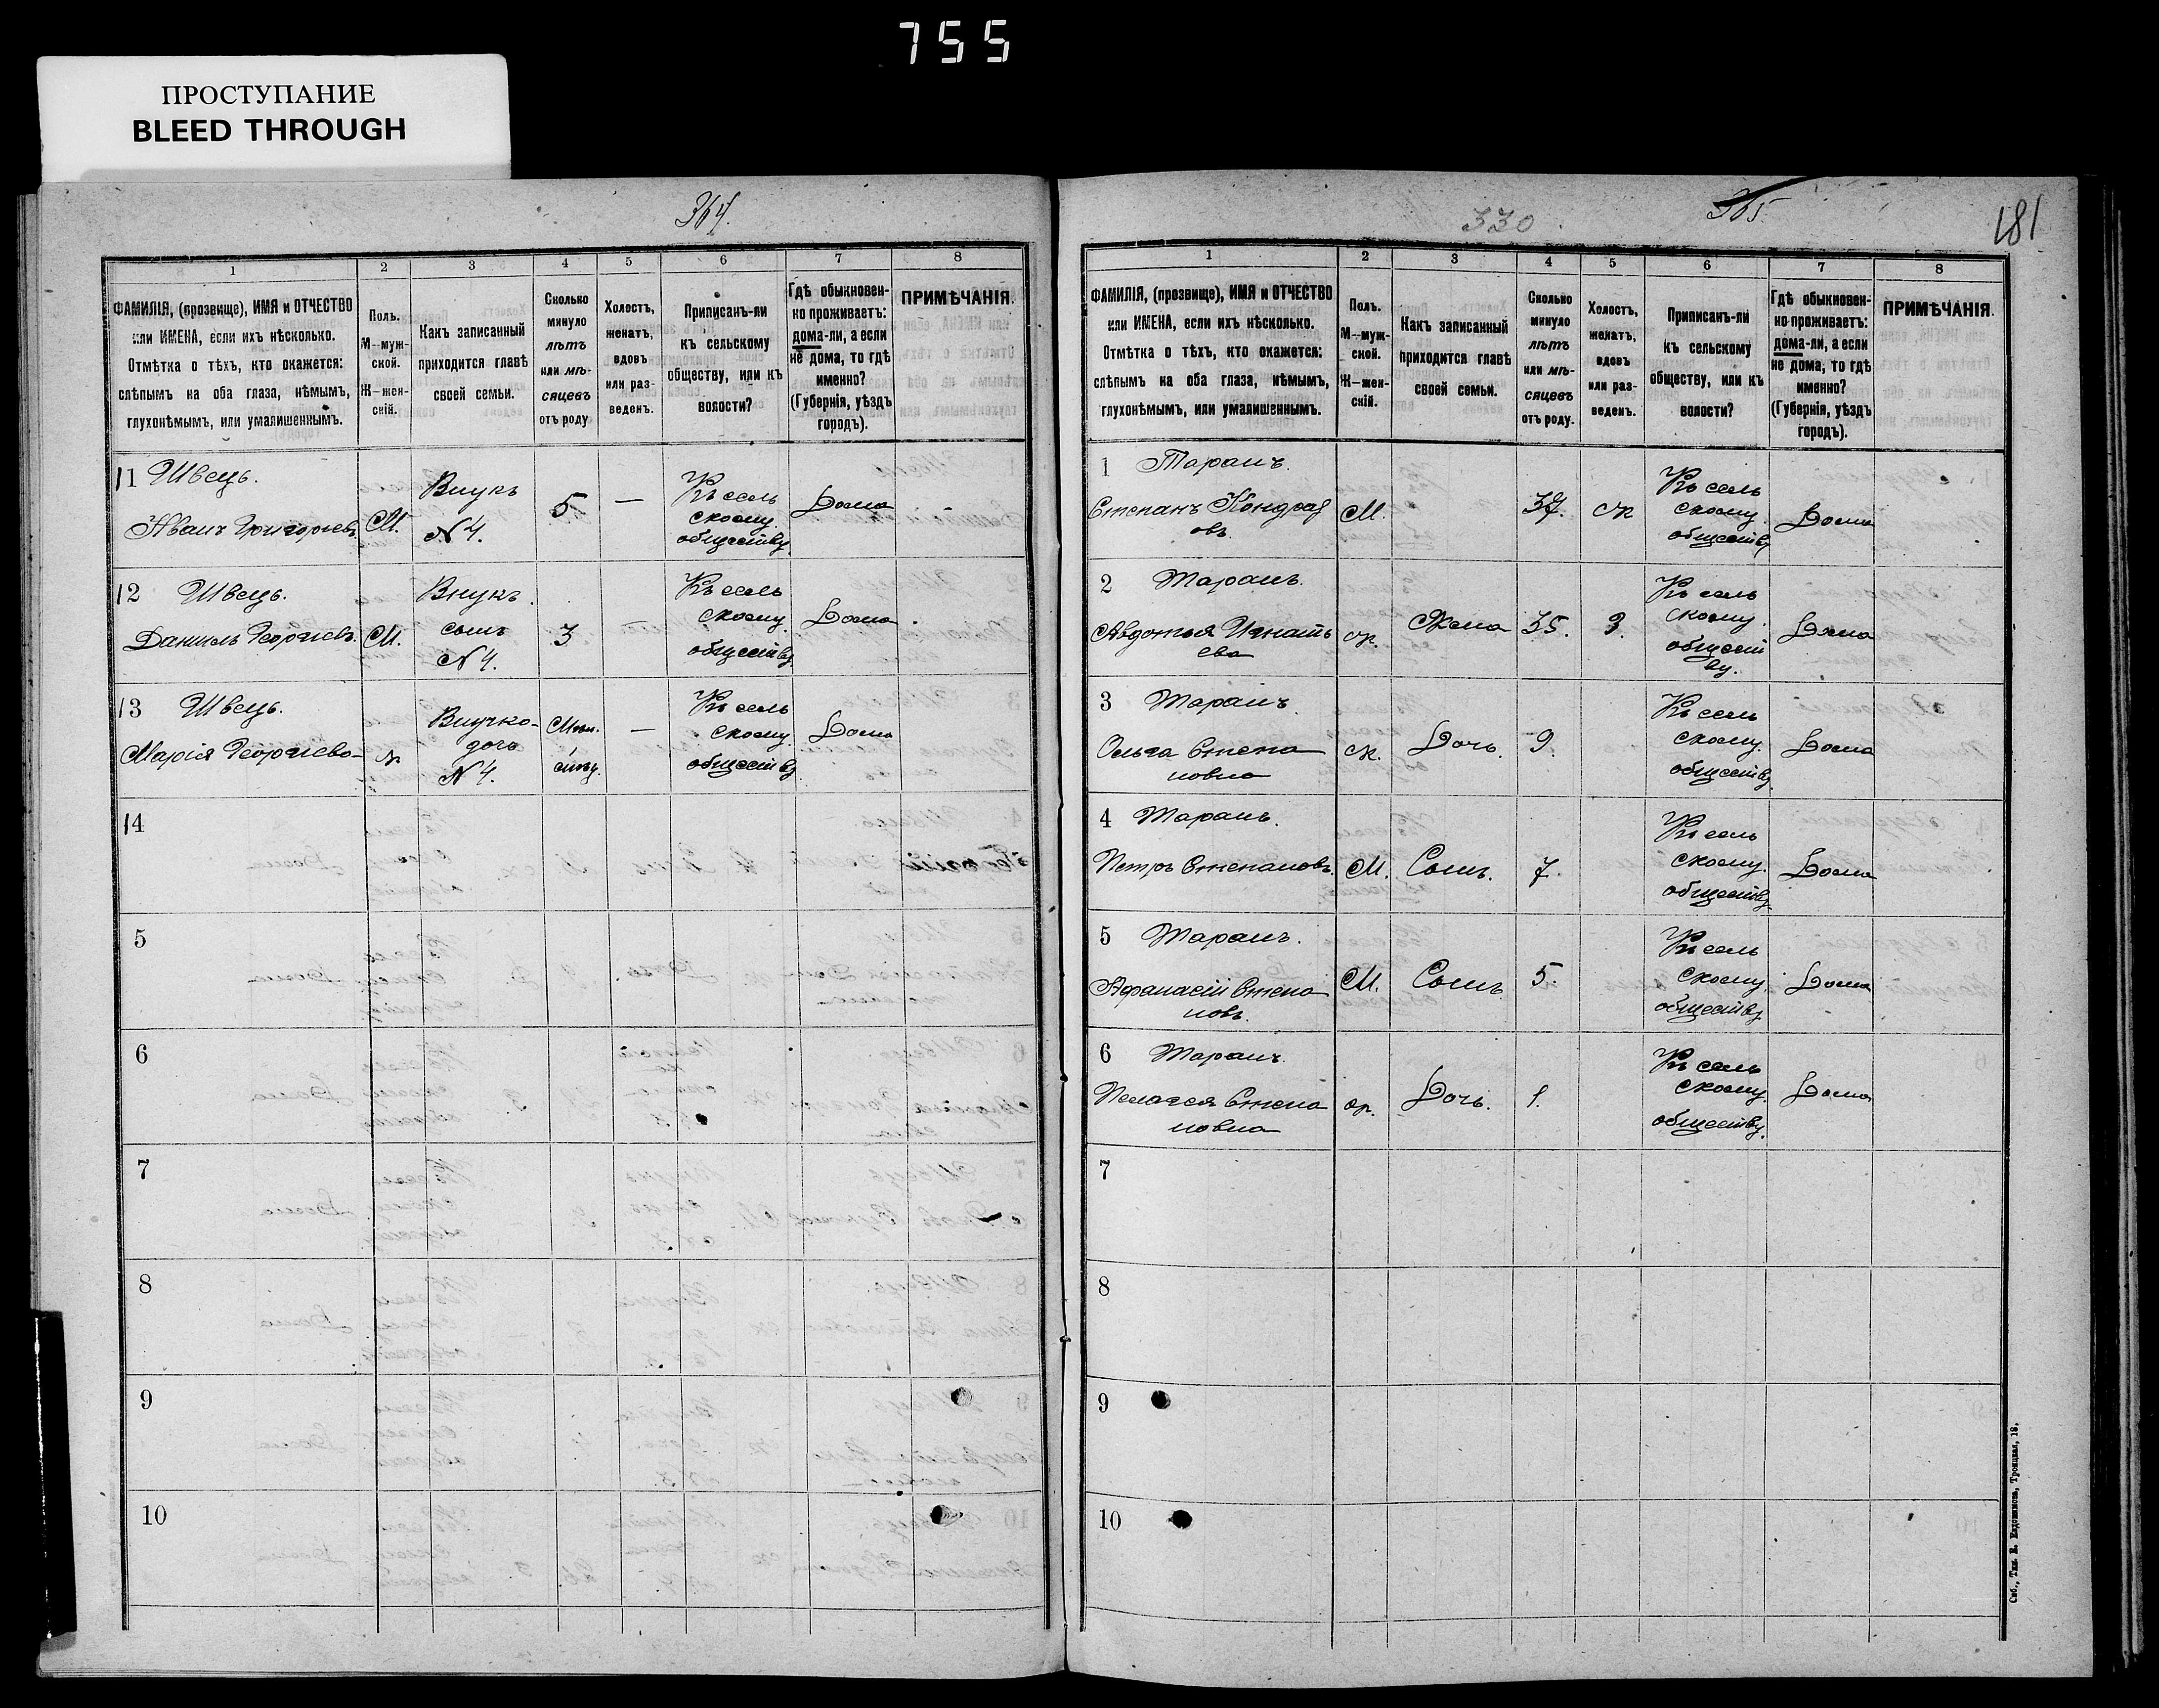 755
ПРОСТУПАНИЕ
BLEED THROUGH
364.
1 2 3 4 5 6 7 8
ФАМИЛІЯ, (прозвище), ИМЯ и ОТЧЕСТВО
или ИМЕНА, если ихъ нѣсколько.
Отмѣтка о тѣхъ, кто окажется:
слѣпымъ на оба глаза, нѣмымъ,
глухонѣмымъ, или умалишеннымъ.
Полъ.
М—муж-
ской.
Ж—жен-
скій.
Какъ записанный
приходится главѣ
своей семьи.
Сколько
минуло
лѣтъ
или мѣ-
сяцевъ
отъ роду
Холостъ,
женатъ,
вдовъ
или раз-
веденъ.
Приписанъ-ли
къ сельскому
обществу, или къ
волости?
Гдѣ обыкновен-
но проживаетъ:
дома-ли, а если
не дома, то гдѣ
именно?
(Губернія, уѣздъ
городъ).
ПРИМѢЧАНІЯ.
11 Швець.
Иванъ Григорьевъ.
М.
Внукъ
N 4.
5
—
Къ сель
скому
обществу
Дома
12 Швець.
Даниилъ Георгіевъ.
М.
Внукъ.
сынъ
N 4.
3
—
Къ сель
скому
обществу
Дома
13 Швець.
Марія Георгіева
ж
Внучка
дочь
N 4.
—
Къ сель
скому
обществу
Дома
14
5
6
7
8
9
10
330
365
181
1 2 3 4 5 6 7 8
ФАМИЛІЯ, (прозвище), ИМЯ и ОТЧЕСТВО
или ИМЕНА, если ихъ нѣсколько.
Отмѣтка о тѣхъ, кто окажется:
слѣпымъ на оба глаза, нѣмымъ,
глухонѣмымъ, или умалишеннымъ.
Полъ.
М—муж-
ской.
Ж—жен-
скій.
Какъ записанный
приходится главѣ
своей семьи.
Сколько
минуло
лѣтъ
или мѣ-
сяцевъ
отъ роду.
Холостъ,
женатъ,
вдовъ
или раз-
веденъ.
Приписанъ-ли
къ сельскому
обществу, или къ
волости?
Гдѣ обыкновен-
но проживаетъ:
дома-ли, а если
не дома, то гдѣ
именно?
(Губернія, уѣздъ
городъ).
ПРИМѢЧАНІЯ.
1 Таранъ.
Степанъ Кондрат
овъ.
М.
37.
ж
Къ сель
скому
обществу
Дома
2 Таранъ.
Авдотья Игнать
ева
ж.
Жена
35.
З.
Къ сель
скому
общест
ву.
Дома
3 Таранъ
Ольга Степа
новна
ж.
Дочь
9.
Къ сель
скому
обществу
Дома
4 Таранъ.
Петръ Степановъ.
М.
Сынъ.
7.
Къ сель
скому
обществу
Дома
5 Таранъ.
Афанасій Степа
новъ.
М.
Сынъ
5.
Къ сель
скому
обществу
Дома
6 Таранъ.
Пелагея Степа
новна
ж.
Дочь.
1.
Къ сель
скому
обществу.
Дома
7
8
9
10
Спб., Тип. Е. Евдокимова, Троицкая, 18.